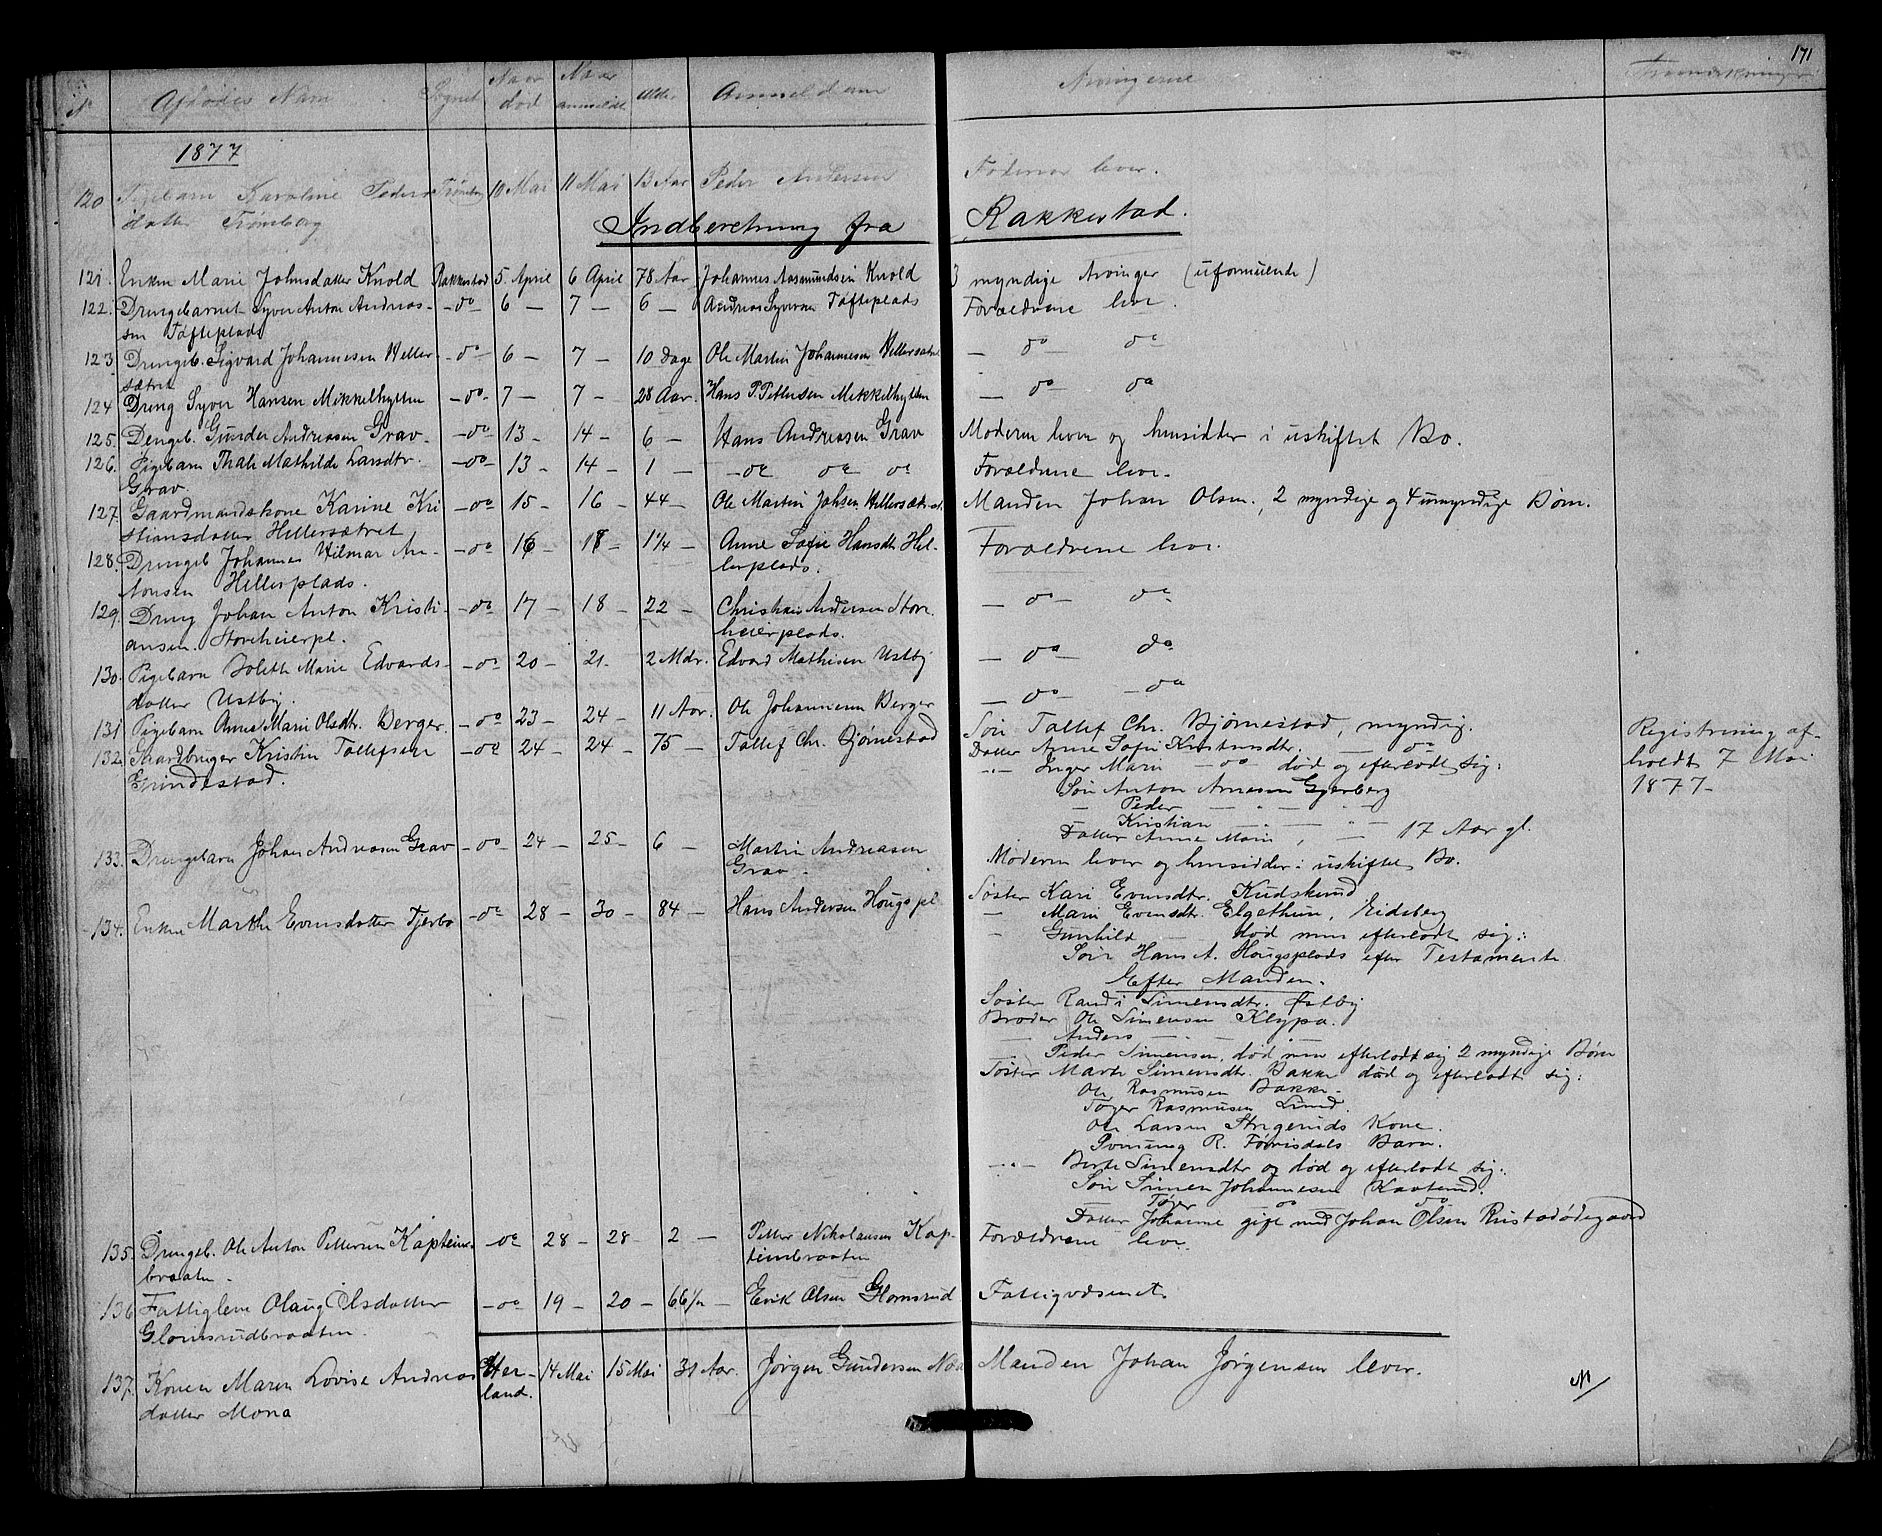 171
No Afdødes Navn Sognet Naar død Naar anmeldt Alder Anmelderen Arvingerne Anmærkninger
1877
120 Pigebarn Karoline Peders Trømborg 10 Mai 11 Mai 13 Aar Peder Andersen Faderen lever.
datter Trømborg
Indberetning fra Rakkestad.
121. Enken Marie Johnsdatter Knold Rakkestad 5. April 6 April 78 Aar Johannes Aasmundsen Knold 3 myndige Arvinger (uformuende)
122. Drengebarnet Syver Anton Andreas- -do- 6 - 7 - 6 - Andreas Syversen Tøfteplads Forældrene lever.
sen Tøfteplads
123 Drengeb. Sigvard Johannesen Heller- -do- 6 - 7 - 10 Dage Ole Martin Johannesen Hellersætret - do - do
sætret
124 Dreng Syver Hansen Mikkelhytten -do- 7 - 7 - 28 Aar. Hans P. Pettersen Mikkelhytten - do do
125. Drengeb. Gunder Andreasen Grav -do 13 - 14 - 6 - Hans Andreasen Grav Moderen lever og hensidder i uskiftet Bo.
126. Pigebarn Thale Mathilde Larsdtr. -do- 13 - 14 - 1 - - do do do Forældrene lever.
Grav.
127. Gaardmandskone Karine Kri -do 15 - 16 - 44 - Ole Martin Johsen Hellersætret Manden Johan Olsen, 2 myndige og 4 umyndige Børn.
stiansdatter Hellersætret
128. Drengeb Johannes Hilmar An- -do 16 - 18 - 1 1/4 - Anne Sofie Hansdtr Hel- Forældrene lever.
tonsen Hellerplads. lerplads.
129. Dreng Johan Anton Kristi- -do 17 - 18 - 22 - Christian Andersen Stor- - do - do
ansen Storeheierpl. heierplads.
130. Pigebarn Bolette Marie Edvards- -do 20 - 21 - 2 Mdr. Edvard Mathisen Ustby - do - do
datter Ustby.
131 Pigebarn Anne Marie Olsdtr. Berger. -do 23 - 24 - 11 Aar. Ole Johannesen Berger - do - do
132. Gaardbruger Kristen Tollefsen -do 24 - 24 - 75 - Tollef Chr. Bjørnestad Søn Tollef Chr. Bjørnestad, myndig.
Grindestad. Datter Anne Sofie Kristensdtr. - do
-"- Inger Marie -do- død og efterladt sig:
Søn Anton Arnesen Gjerberg
- Peder - " - " -
- Kristian - " - " -
Datter Anne Marie, - 17 Aar gl.
Registrering af-
holdt 7 Mai
1877-
133. Drengebarn Johan Andreasen Grav -do 24 - 25 - 6 - Martin Andreasen Moderen lever og hensidder i uskiftet Bo.
Grav.
134. Enken Marthe Evensdatter Tjerbo -do 28 - 30 - 84 - Hans Andersen Hougspl Søster Kari Evensdtr. Kudskund
- Marie Evensdtr. Elgethun, Eidsberg
- Gunhild - død men efterladt sig:
Søn Hans A. Hougsplads efter Testamente
Efter Manden.
Søster Randi Simensdtr. Østby
Broder Ole Simensen Klypa.
- Anders - " -
- Peder Simensen, død men efterladt sig 2 myndige Børn
Søster Marte Simensdtr. Bakke død og efterladt sig:
Ole Rasmusen Bakke.
Tøger Rasmusen Lund.
Ole Larsen Kone.
R. Barn.
-"- Berte Simensdtr og død og efterladt sig:
Søn Simen Johannesen Kavlund.
Tøger do do
Datter Johanne gift med Johan Olsen Rustadødegaard
135. Drengeb. Ole Anton Pettersen Kapteins- -do 28 - 28 - 2 - Petter Nikolausen Kap- Forældrene lever.
braaten. teinbraaten
136 Fattiglem Olaug Olsdatter -do 19 - 20 - 66 1/2 - Erik Olsen Glomsrud Fattigvæsenet.
Glomsrudbraaten.
137. Konen Maren Lovise Andreas Her- 14 Mai 15 Mai 31 Aar. Jørgen Gundersen Manden Johan Jørgensen lever.
datter Mona land.
N/